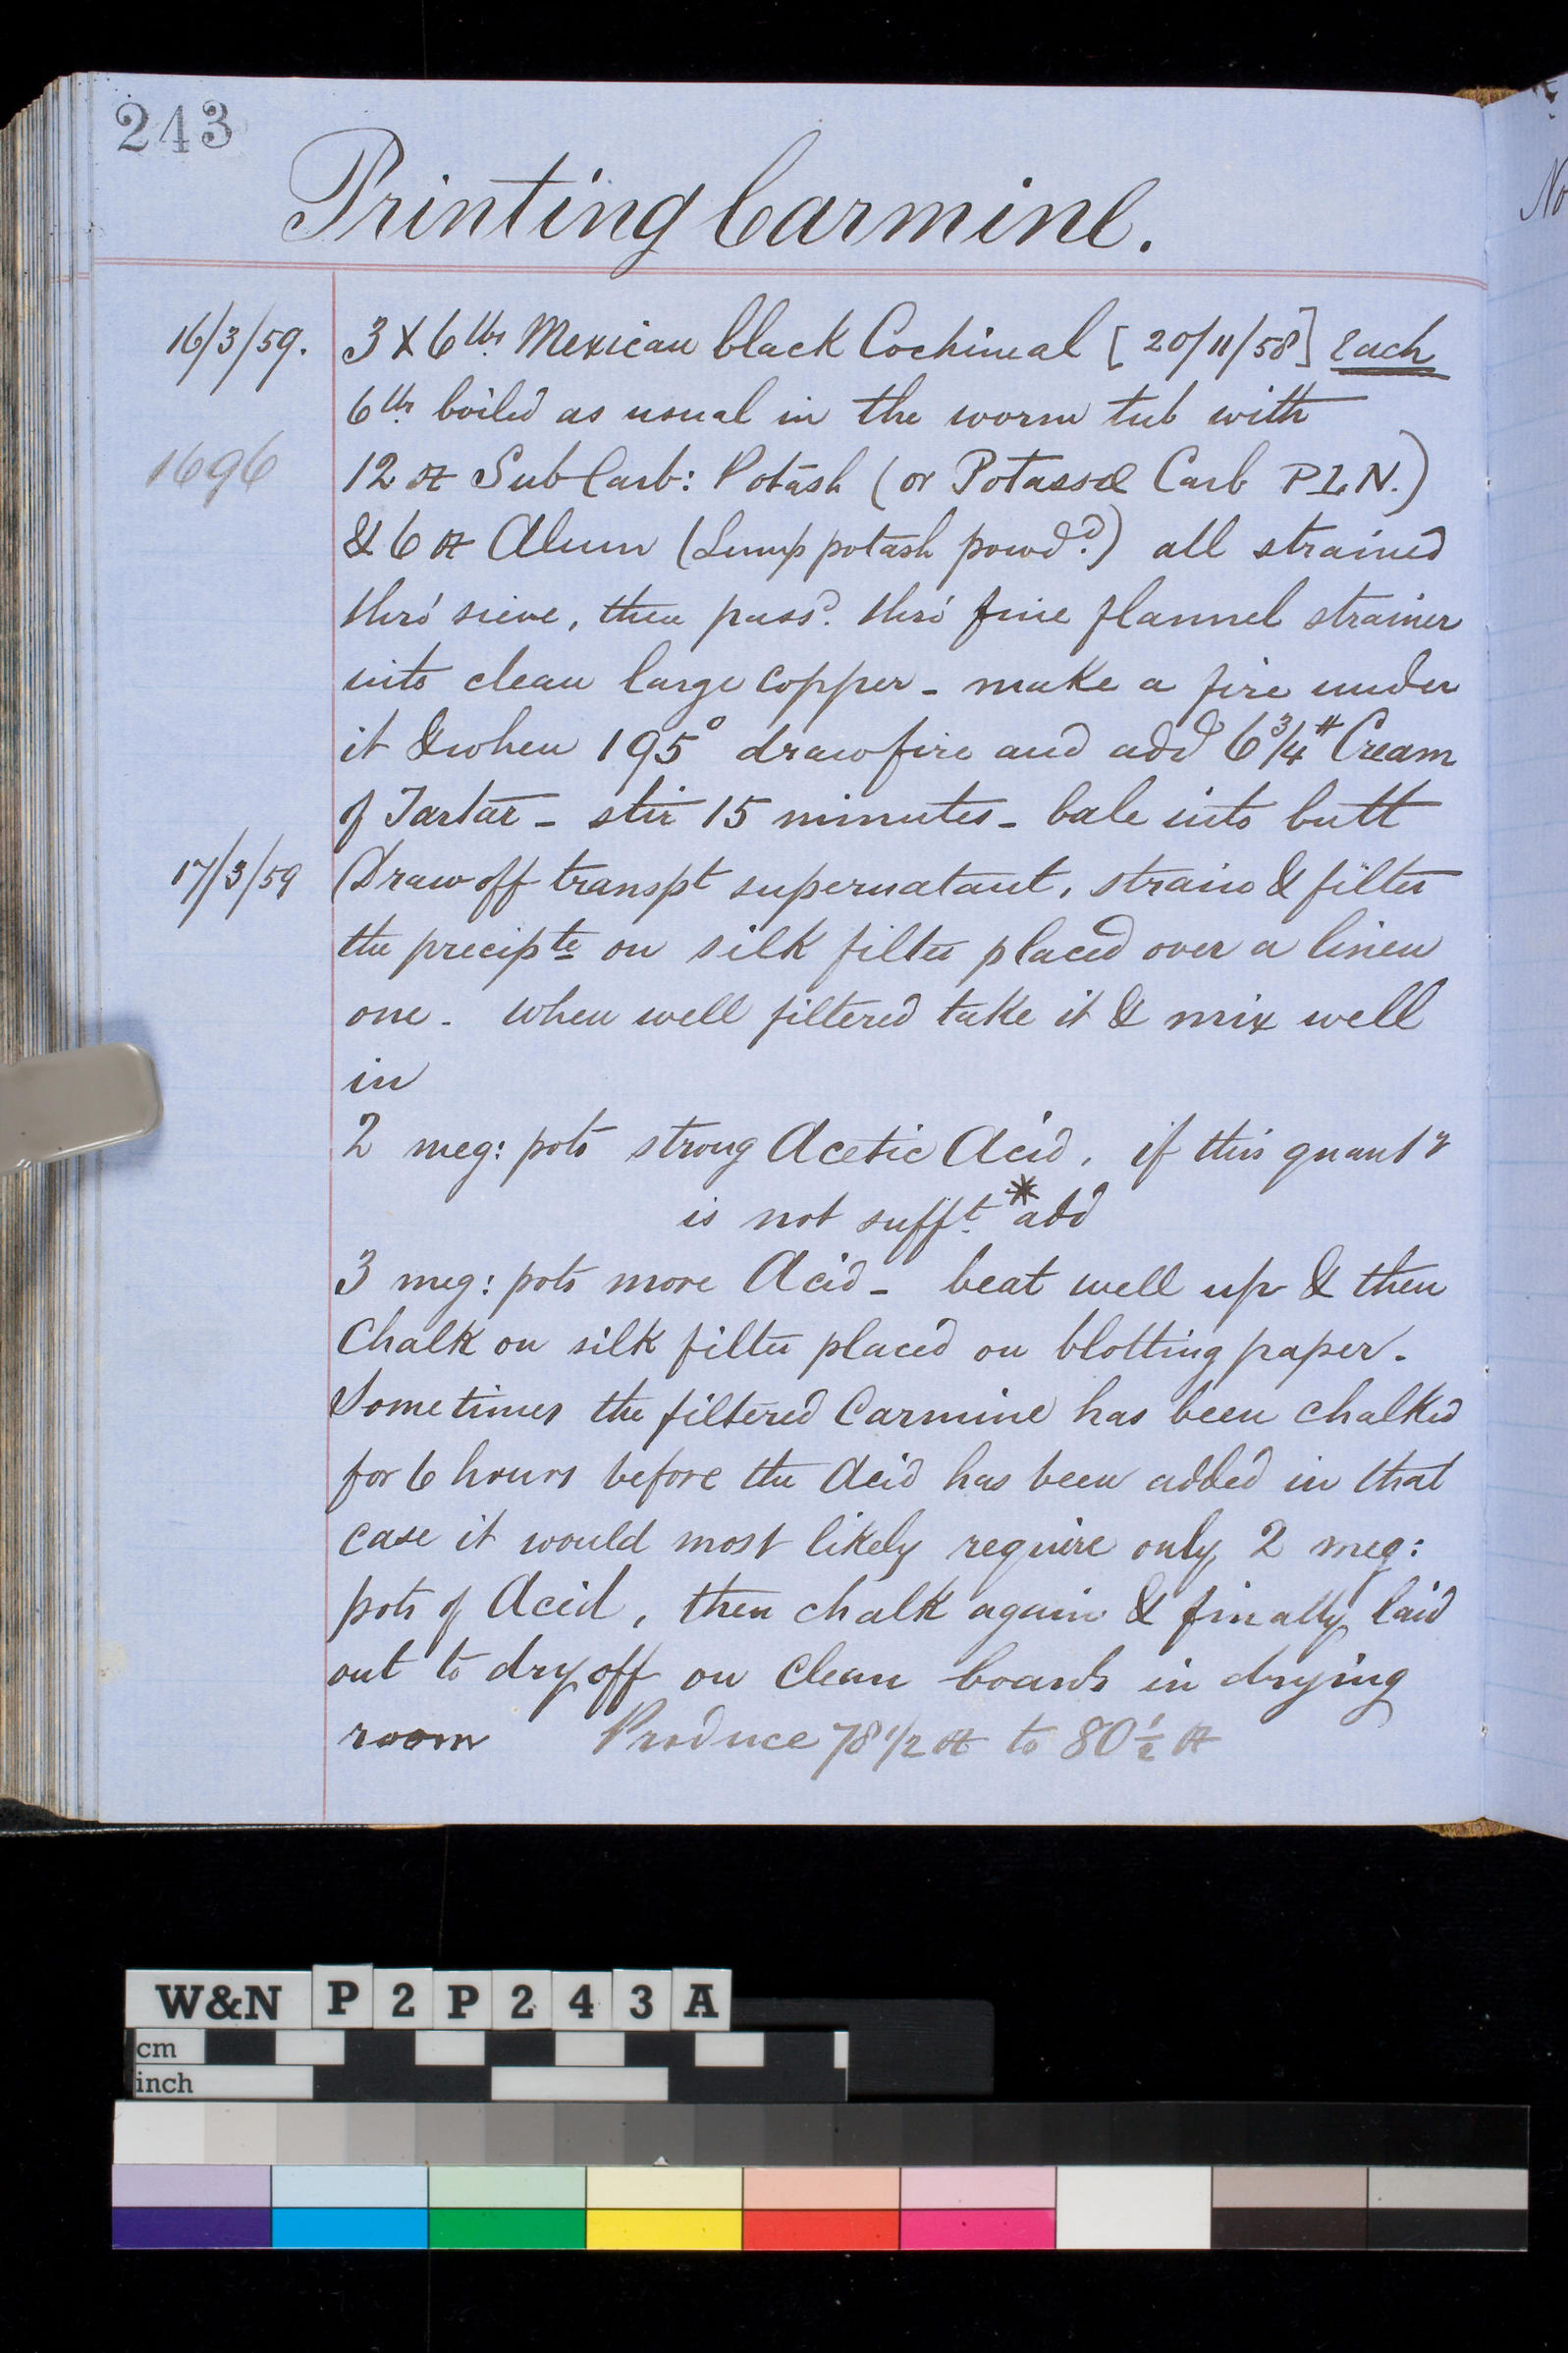 243
Printing Carmine.
16/3/59. 3 X 6 lbs. Mexican black Cochineal [20/11/58] Each
6 lbs boiled as usual in the worm tub with
1696
12 ℥ Sub Carb: Potash (or Potassæ Carb P.L.N.)
& 6 ℥ Alum (Lump potash powd.) all strained
thro' sieve, then passd. thro' fine flannel strainer
into clean large copper - make a fire under
it & when 195° draw fire and add 6 3/4 # Cream
of Tartar - stir 15 minutes - bale into butt
17/3/59 Draw off transpt supernatant, strain & filter
the precipte on silk filter placed over a linen
one. When well filtered take it & mix well
in
2 meg: pots strong Acetic Acid, if this quanty
is not sufft. * add
3 meg: pots more Acid - beat well up & then
Chalk on silk filter placed on blotting paper.
Sometimes the filtered Carmine has been chalked
for 6 hours before the Acid has been added in that
case it would most likely require only 2 meg:
pots of Acid, then chalk again & finally laid
out to dry off on Clean boards in drying
room Produce 78 1/2 ℥ to 80 1/2 ℥
No
W&N P2P243A
cm
inch